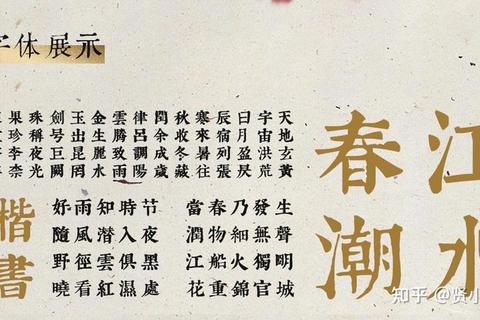 字体展示
天地玄黃
宇宙洪荒
日月盈昃
辰宿列張
寒來暑往
秋收冬藏
閏余成歲
律呂調陽
雲騰致雨
金生麗水
玉出昆岡
劍号巨闕
珠稱夜光
果珍李柰
江水
春潮
楷書
好雨知時节
隨風潛入夜
野徑雲俱黑
曉看紅濕處
當春乃發生
潤物細無聲
江船火獨明
花重錦官城
知乎 @贤小